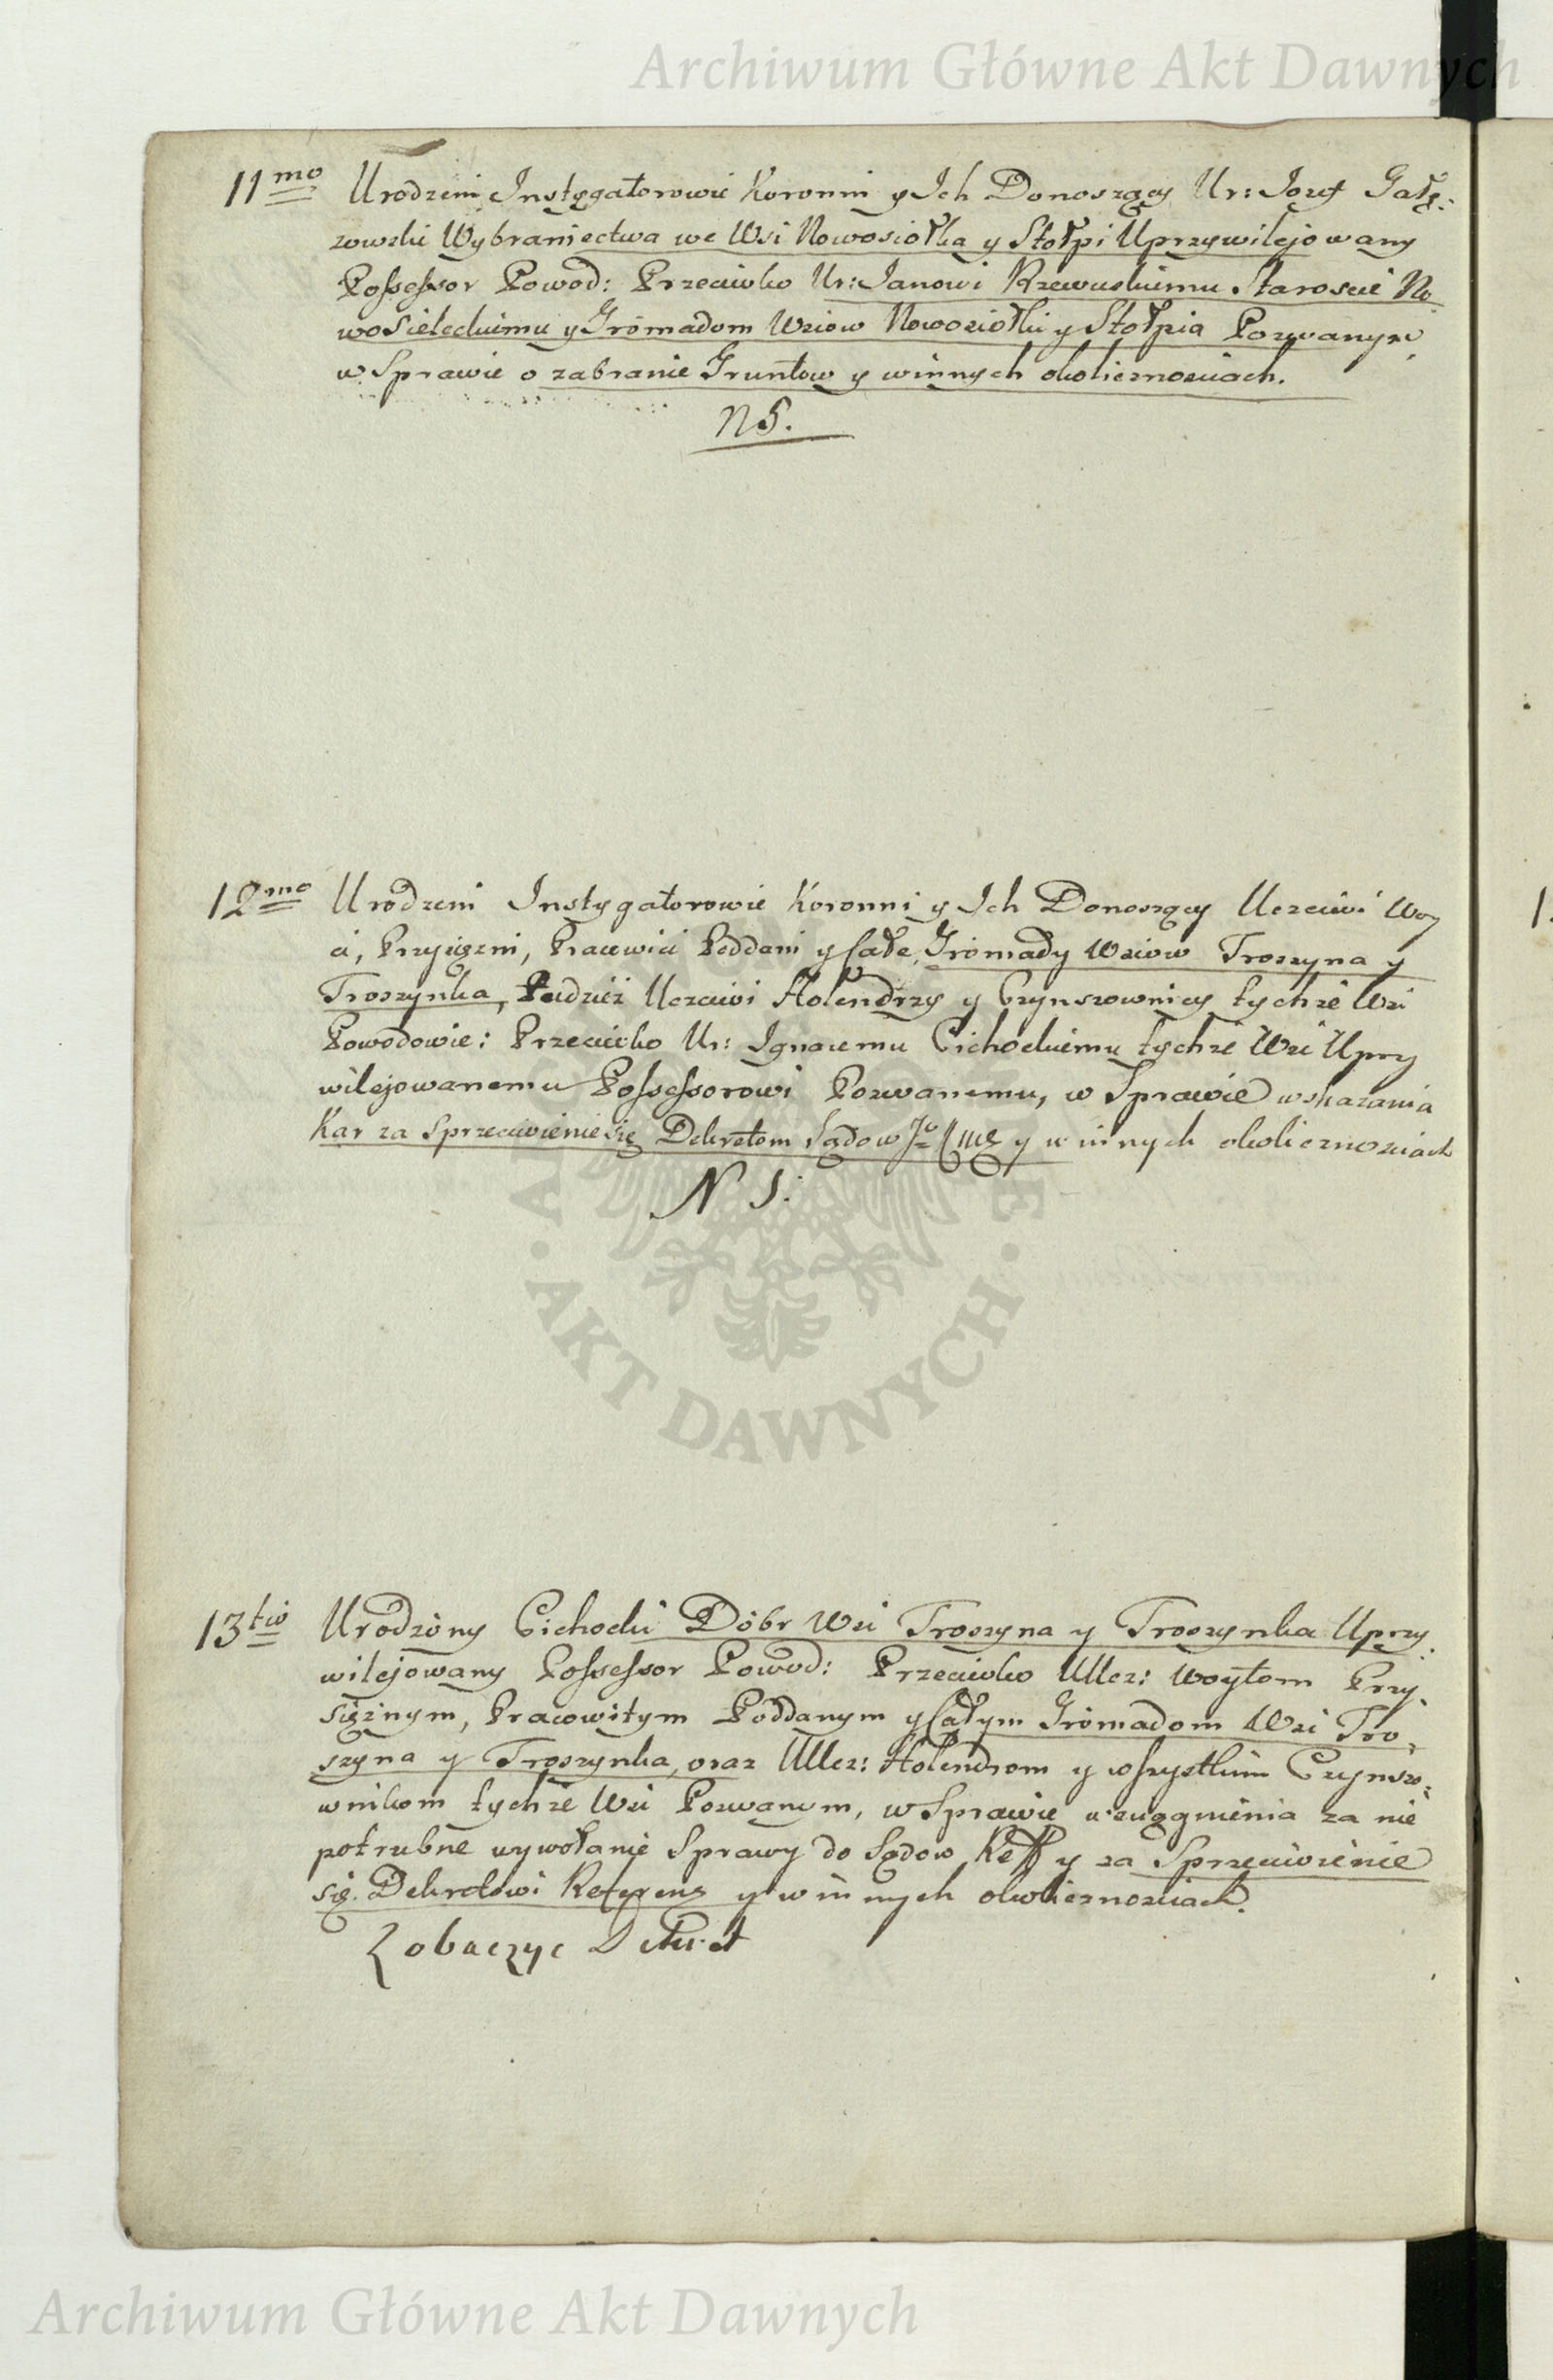 Archiwum Główne Akt Dawnych
11mo Urodzeni Instygatorowie Koronni y Ich Donoszący Ur: Jozef Gałę:
zowski Wybraniectwa we Wsi Nowosiołka y Stołpi Uprzywilejowany
Possessor Powod: Przeciwko Ur: Janowi Rzewuskiemu Staroscie No
wosieleckiemu y Gromadom Wsiow Nowosiołki y Stołpia Pozwanym
w Sprawie o zabranie Gruntow y w innych okolicznosciach.
N 5.
12mo Urodzeni Instygatorowie Koronni y Ich Donoszący Uczciwi Woy
ci, Przysięzni, Pracowici Poddani y Całe Gromady Wsiow Troszyna y
Troszynka, Tudzież Uczciwi Holendrzy y Czynszownicy tychze Wsi
Powodowie: Przeciwko Ur: Ignacemu Cichockiemu tychze Wsi Uprzy
wilejowanemu Possessorowi Pozwanemu, w Sprawie wskazania
Kar za Sprzeciwienie się Dekretom Sądow y w innych okolicznosciach
N 1.
13tio Urodzony Cichocki Dobr Wsi Troszyna y Troszynka Uprzy
wilejowany Possessor Powod: Przeciwko UUcz: Woytom Przy
sięznym, Pracowitym Poddanym y Całym Gromadom Wsi Tro
szyna y Troszynka, oraz UUcz: Holendrom y wszystkim Czynszo:
wnikom tychze Wsi Pozwanym, w Sprawie za nie
potrzebne wywołanie Sprawy do Sądow Reff y za Sprzeciwienie
się Dekretowi Referens y w innych okolicznosciach.
Zobaczyc Dekret
AKT DAWNYCH
Archiwum Główne Akt Dawnych